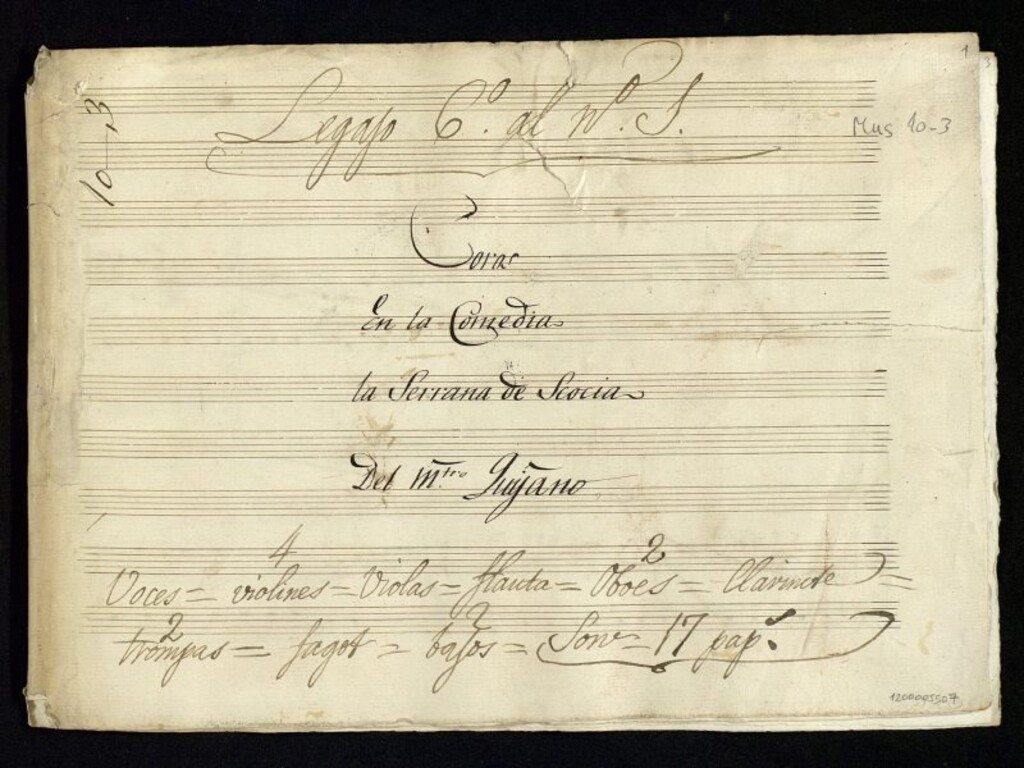 1
3
10-3
Legajo 6.º al nº. 5.
Mus 10-3
En la Comedia
la Serrana de Scocia
Del Mtro Quijano
4 2
Voces = violines = Violas = flauta = Oboes = Clarinete =
2 2
trompas = fagot = bajos = Son 17 pap.s
1200005507